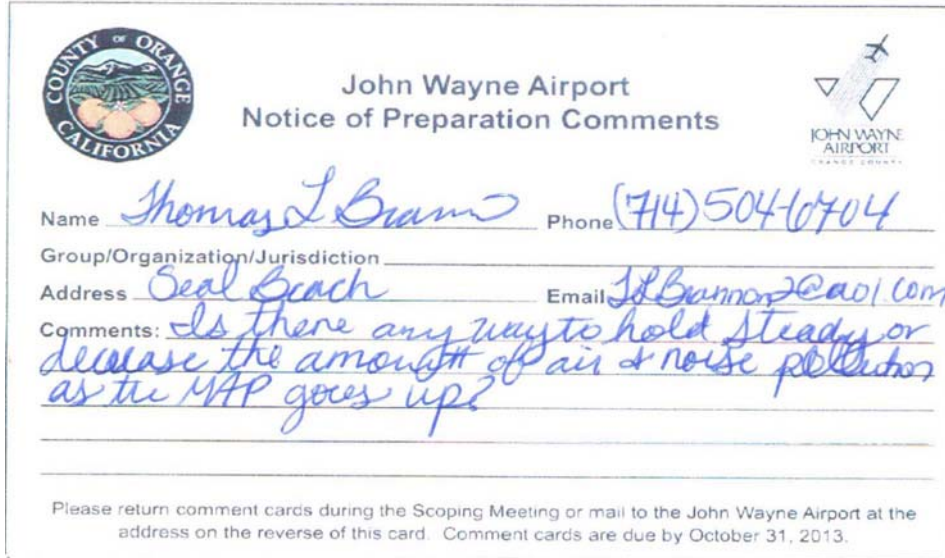 COUNTY OF ORANGE
CALIFORNIA
John Wayne Airport
Notice of Preparation Comments
JOHN WAYNE
AIRPORT
ORANGE COUNTY
Name Thomas L Phone (714) 504-6704
Group/Organization/Jurisdiction
Address Seal Beach Email TLBrannon2@aol.com
Comments: Is there any way to hold steady or
decrease the amount of air & noise pollution
as the MAP goes up?
Please return comment cards during the Scoping Meeting or mail to the John Wayne Airport at the
address on the reverse of this card. Comment cards are due by October 31, 2013.